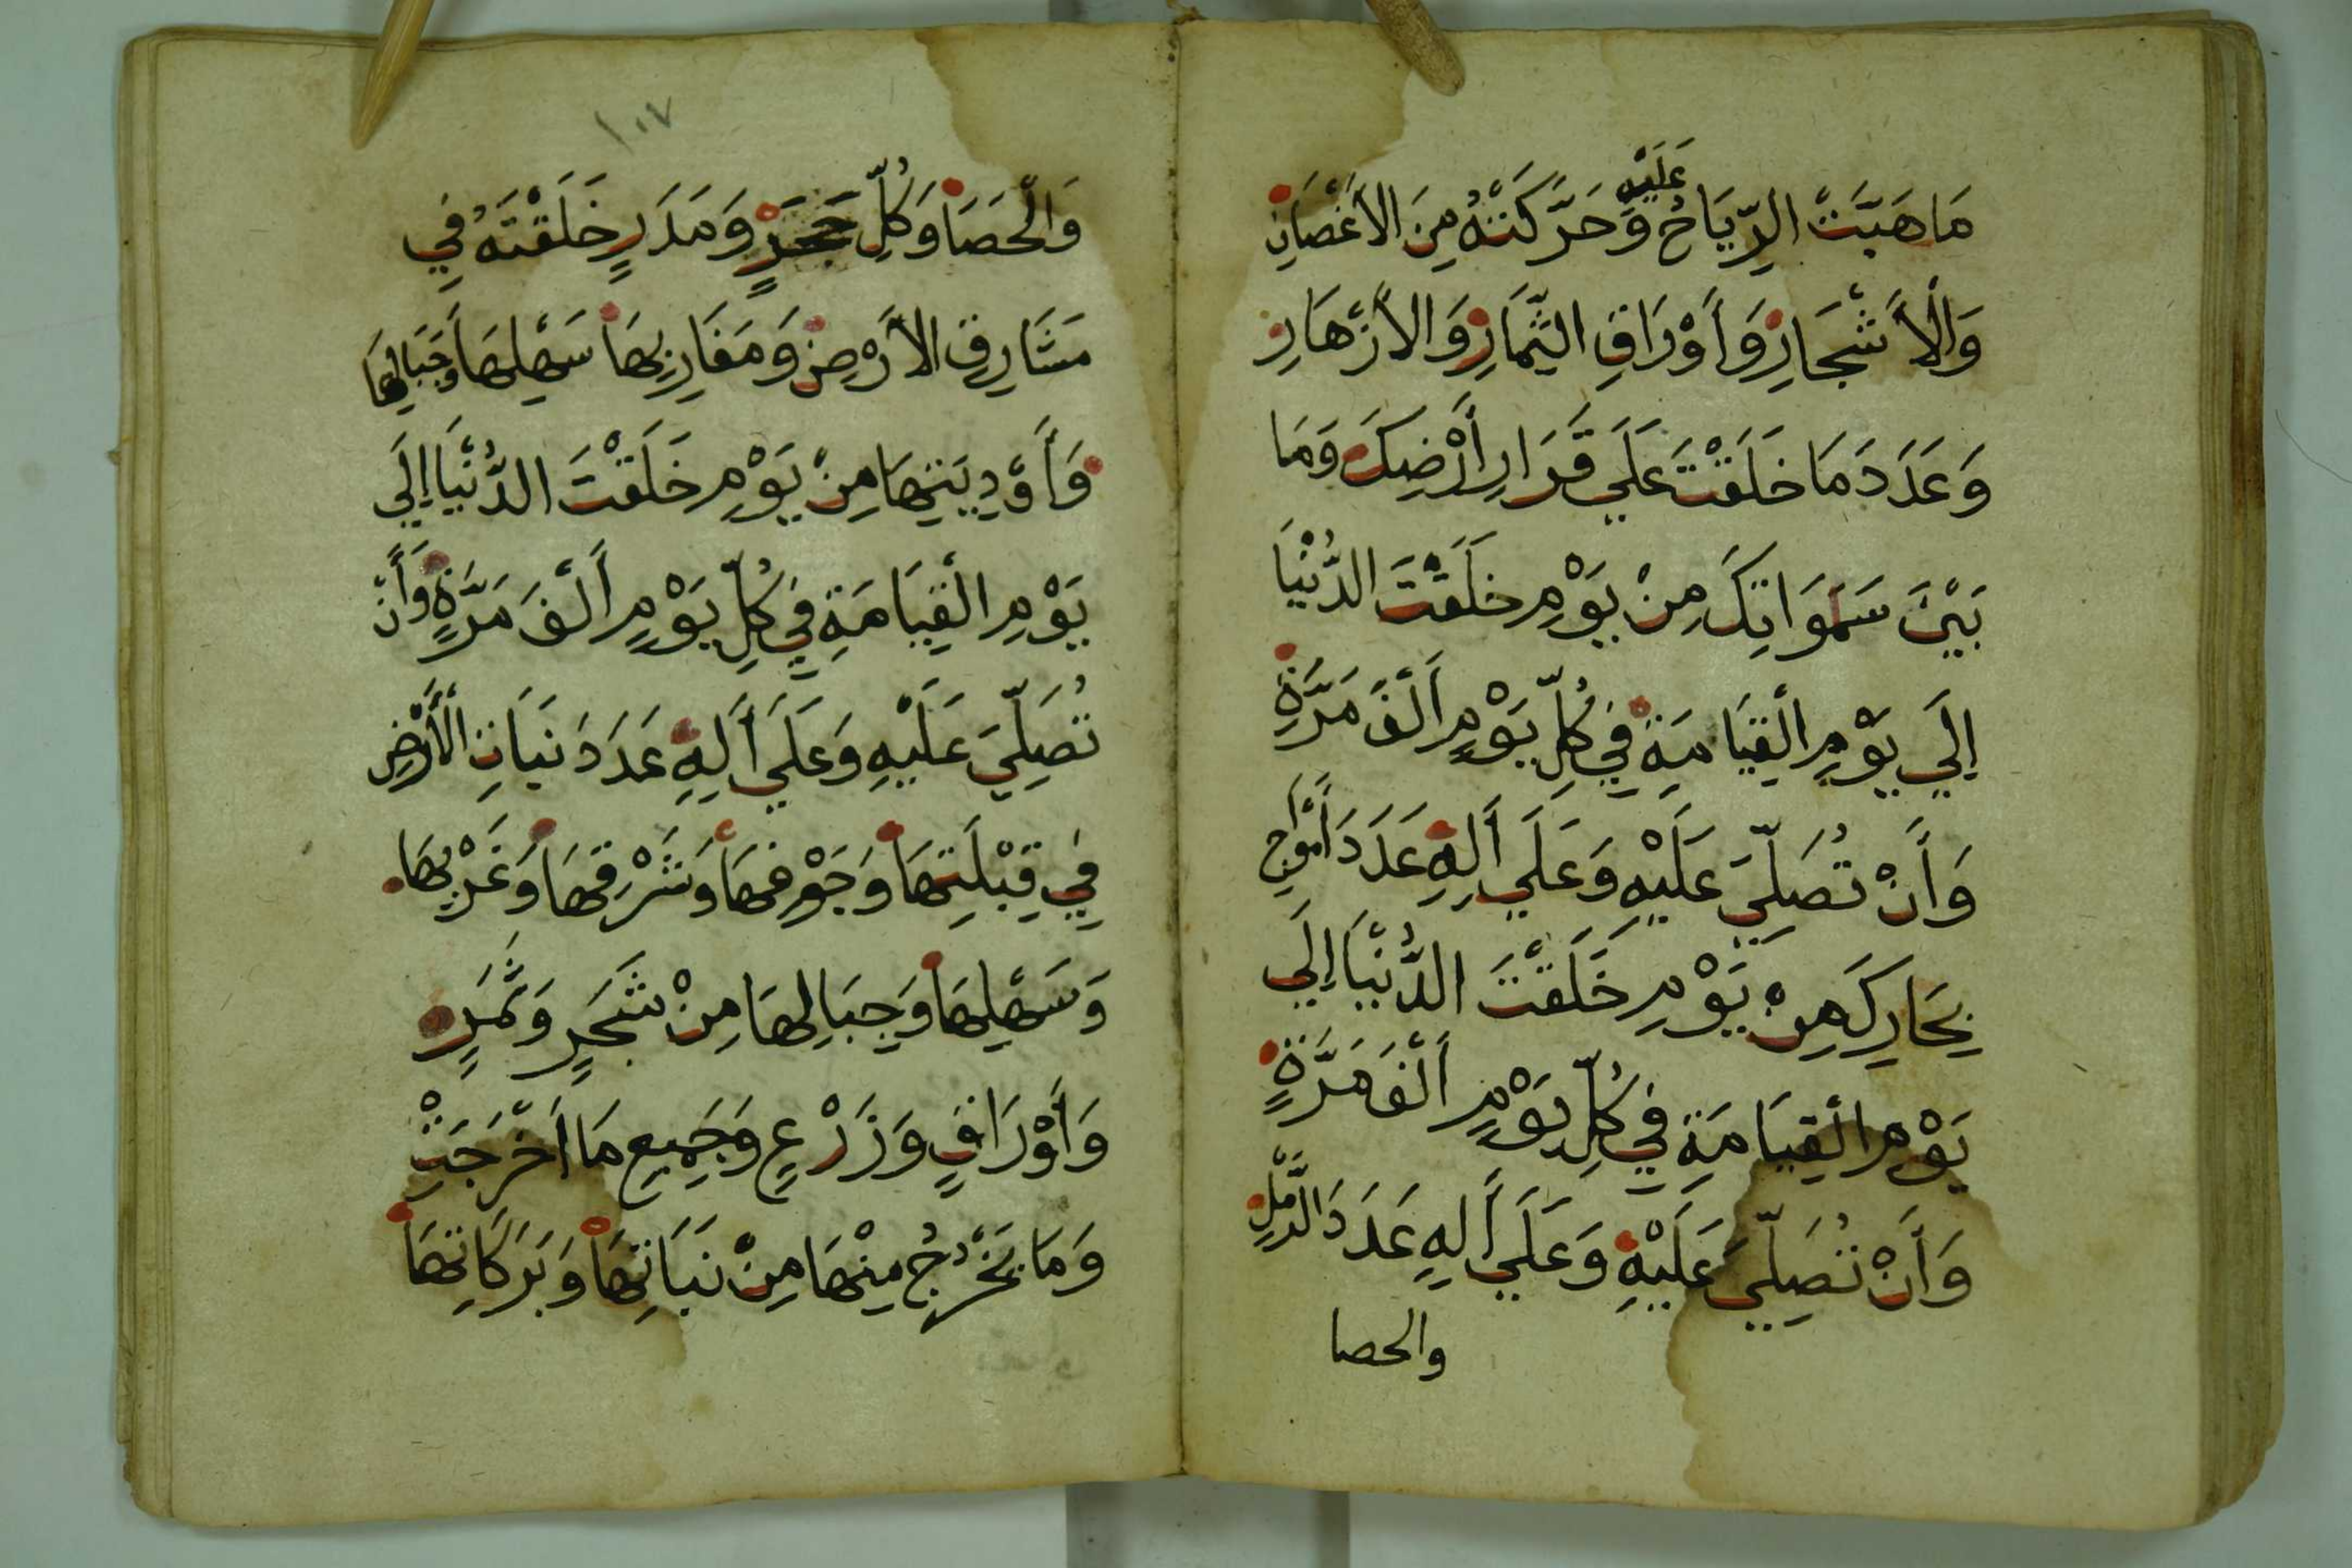 مَا هَبَّتْ الرِّيَاحُ عَلَيْهِ وَحَرَّكَتْهُ مِنَ الاَغْصَانِ
وَالْأَشْجَارِ وَأَوْرَاقِ الثِّمَارِ وَالأَزْهَارِ
وَعَدَدَ مَا خَلَقْتَ عَلَي قَرَارِ أَرْضِكَ وَمَا
بَيْنَ سَمَوَاتِكَ مِنْ يَوْمِ خَلَقْتَ الدُّنْيَا
إِلَي يَوْمِ الْقِيَامَةِ فِي كُلِّ يَوْمٍ أَلْفَ مَرَّةٍ
وَأَنْ تُصَلِّيَ عَلَيْهِ وَعَلَي أَلِهِ عَدَدَ أَمْوَاجِ
بِحَارِكَ مِنْ يَوْمِ خَلَقْتَ الدُّنْيَا إِلَي
يَوْمِ الْقِيَامَةِ فِي كُلِّ يَوْمٍ أَلْفَ مَرَّةٍ
وَأَنْ تُصَلِّيَ عَلَيْهِ وَعَلَي أَلِهِ عَدَدَ الرَّمْلِ
والحصا
١٠٧
وَالْحَصَا وَكُلِّ حَجَرٍ وَمَدَرٍ خَلَقْتَهُ فِي
مَشَارِقِ الأَرْضِ وَمَغَارِبِهَا سَهْلِهَا وَجِبَالِهَا
وَأَوْدِيَتِهَا مِنْ يَوْمِ خَلَقْتَ الدُّنْيَا إِلَي
يَوْمِ الْقِيَامَةِ فِي كُلِّ يَوْمٍ أَلْفَ مَرَّةٍ وَأَنْ
تُصَلِّيَ عَلَيْهِ وَعَلَي أَلِهِ عَدَدَ نَبَاتِ الْأَرْضِ
فِي قِبْلَتِهَا وَجَوْفِهَا وَشَرْقِهَا وَغَرْبِهَا
وَسَهْلِهَا وَجِبَالِهَا مِنْ شَجَرٍ وَثَمَرٍ
وَأَوْرَاقٍ وَزَرْعٍ وَجَمِيعِ مَا أَخْرَجَتْ
وَمَا يَخْرُجُ مِنْهَا مِنْ نَبَاتِهَا وَبَرَكَاتِهَا